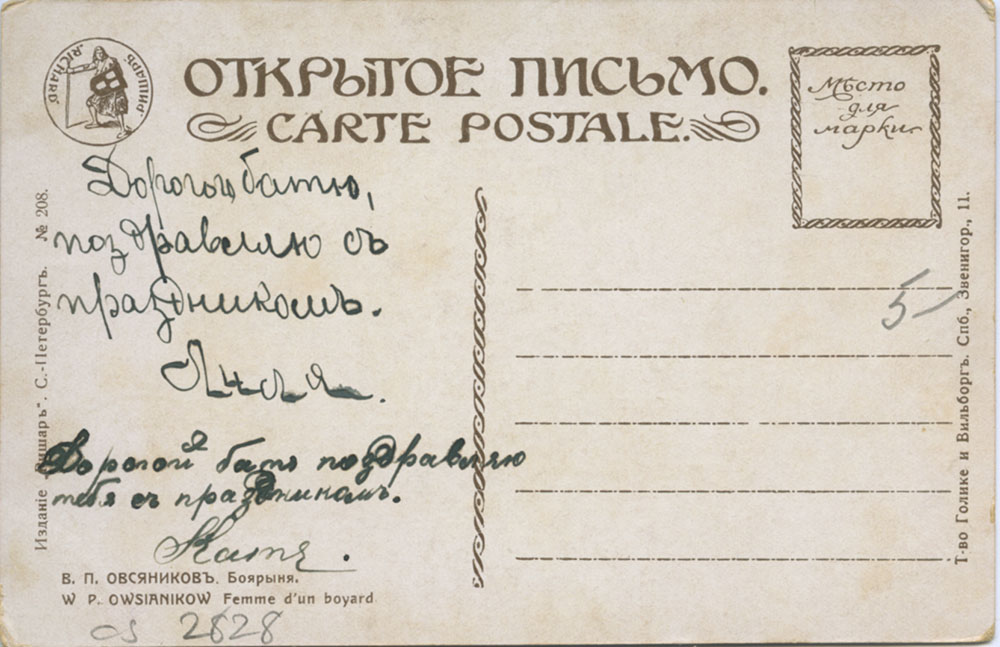 "RICHARD" "РИШАРЪ"
ОТКРЫТОЕ ПИСЬМО.
CARTE POSTALE.
Мѣсто
для
марки
Дорогой батю,
поздравляю съ
праздникомъ.
Лиля.
Дорогой я батю поздравляю
тебя съ праздникомъ.
Катя.
5-
В. П. ОВСЯНИКОВЪ. Боярыня.
W P. OWSIANIKOW Femme d'un boyard
os 2828
Изданіе „Ришаръ". С.-Петербургъ. № 208.
Т-во Голике и Вильборгъ. Спб., Звенигор., 11.